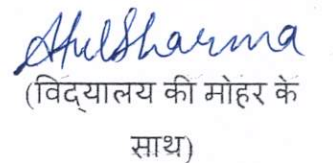 Atul Sharma
(विद्यालय की मोहर के
साथ)